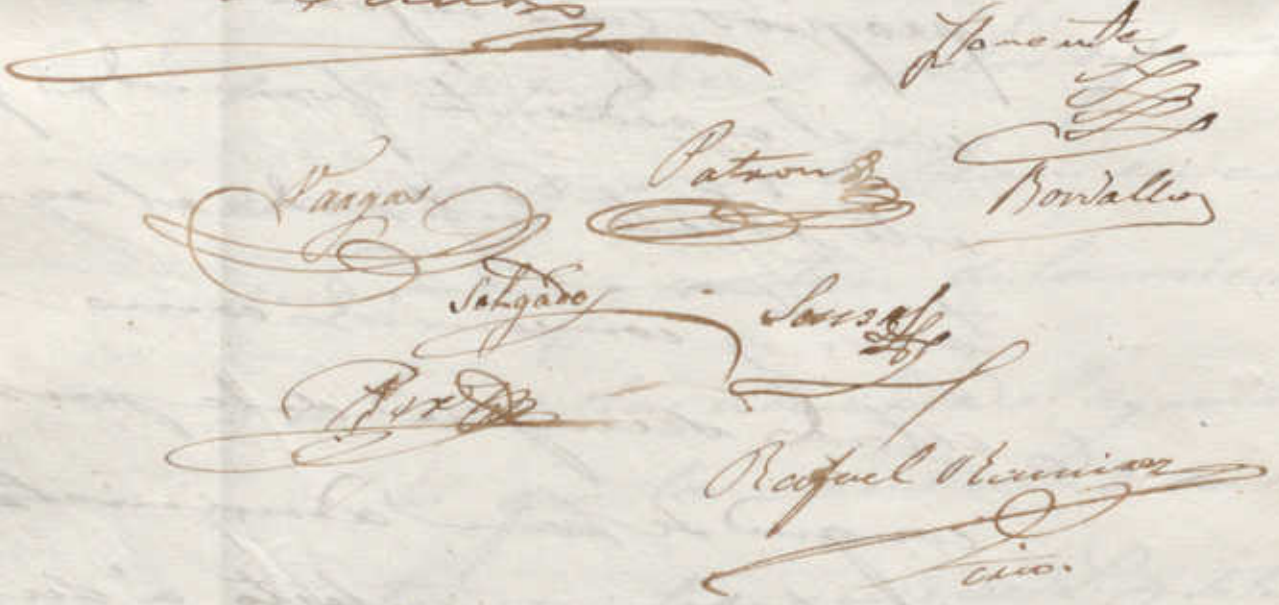 Llorente
Vargas Patron Bordallo
Salgado Sousa
Rafael Ramirez